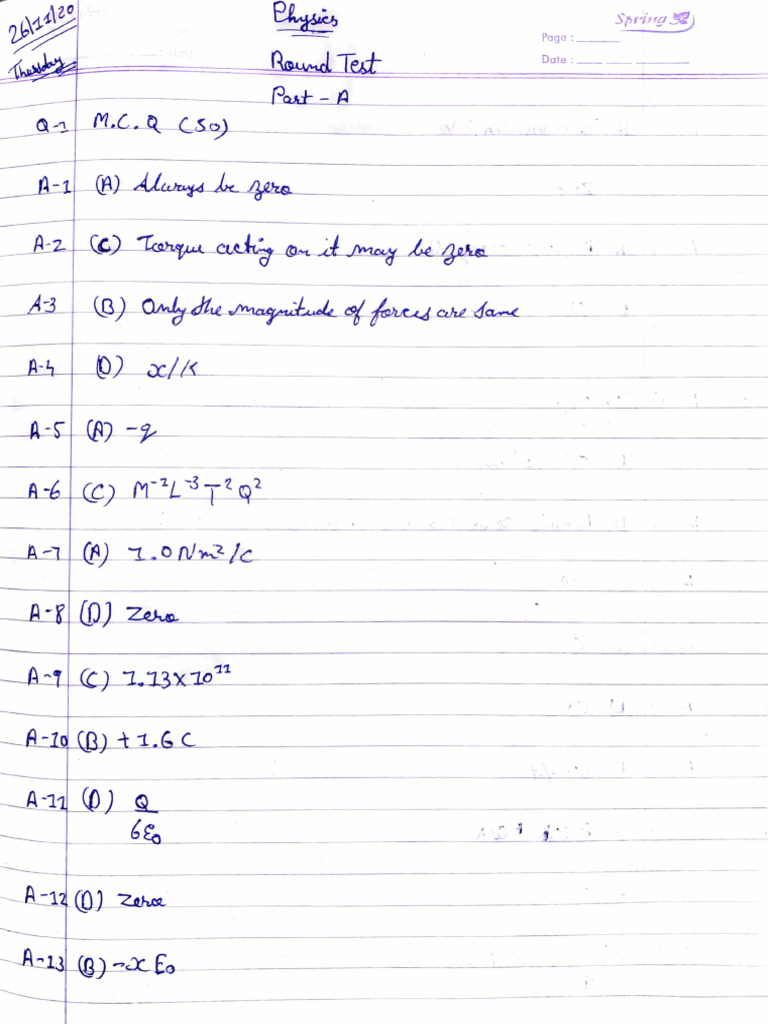 26/11/20
Thursday
Physics
Spring
Page :
Date :
Round Test
Part - A
Q-1 M.C.Q (50)
A-1 (A) Always be zero
A-2 (C) Torque acting on it may be zero
A-3 (B) Only the magnitude of forces are same
A-4 (D) x/K
A-5 (A) -q
A-6 (C) M⁻¹L⁻³T²Q²
A-7 (A) 1.0 Nm²/C
A-8 (D) Zero
A-9 (C) 1.13x10¹¹
A-10 (B) + 1.6 C
A-11 (D) Q
6ε₀
A-12 (D) Zero
A-13 (B) -x E₀